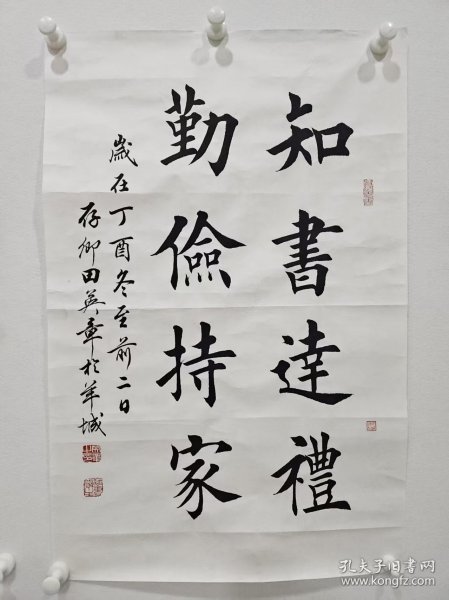 知書達禮
勤儉持家
歲在丁酉冬至前二日
存卿田英章於羊城
孔夫子旧书网
www.kongfz.com